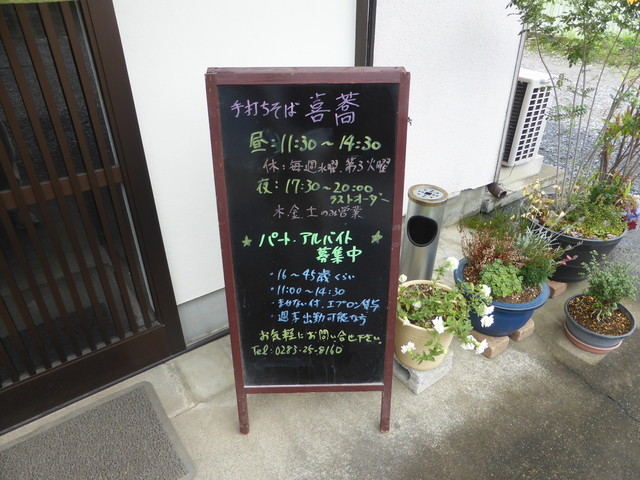 手打ちそば 喜蕎
昼:11:30～14:30
休:毎週水曜、第3火曜
夜:17:30～20:00
ラストオーダー
木金土のみ営業
★パート・アルバイト★
募集中
・16～45歳くらい
・11:00～14:30
・まかない付、エプロン貸与
・週末出勤可能な方
お気軽にお問い合せ下さい。
Tel:0283-25-8160